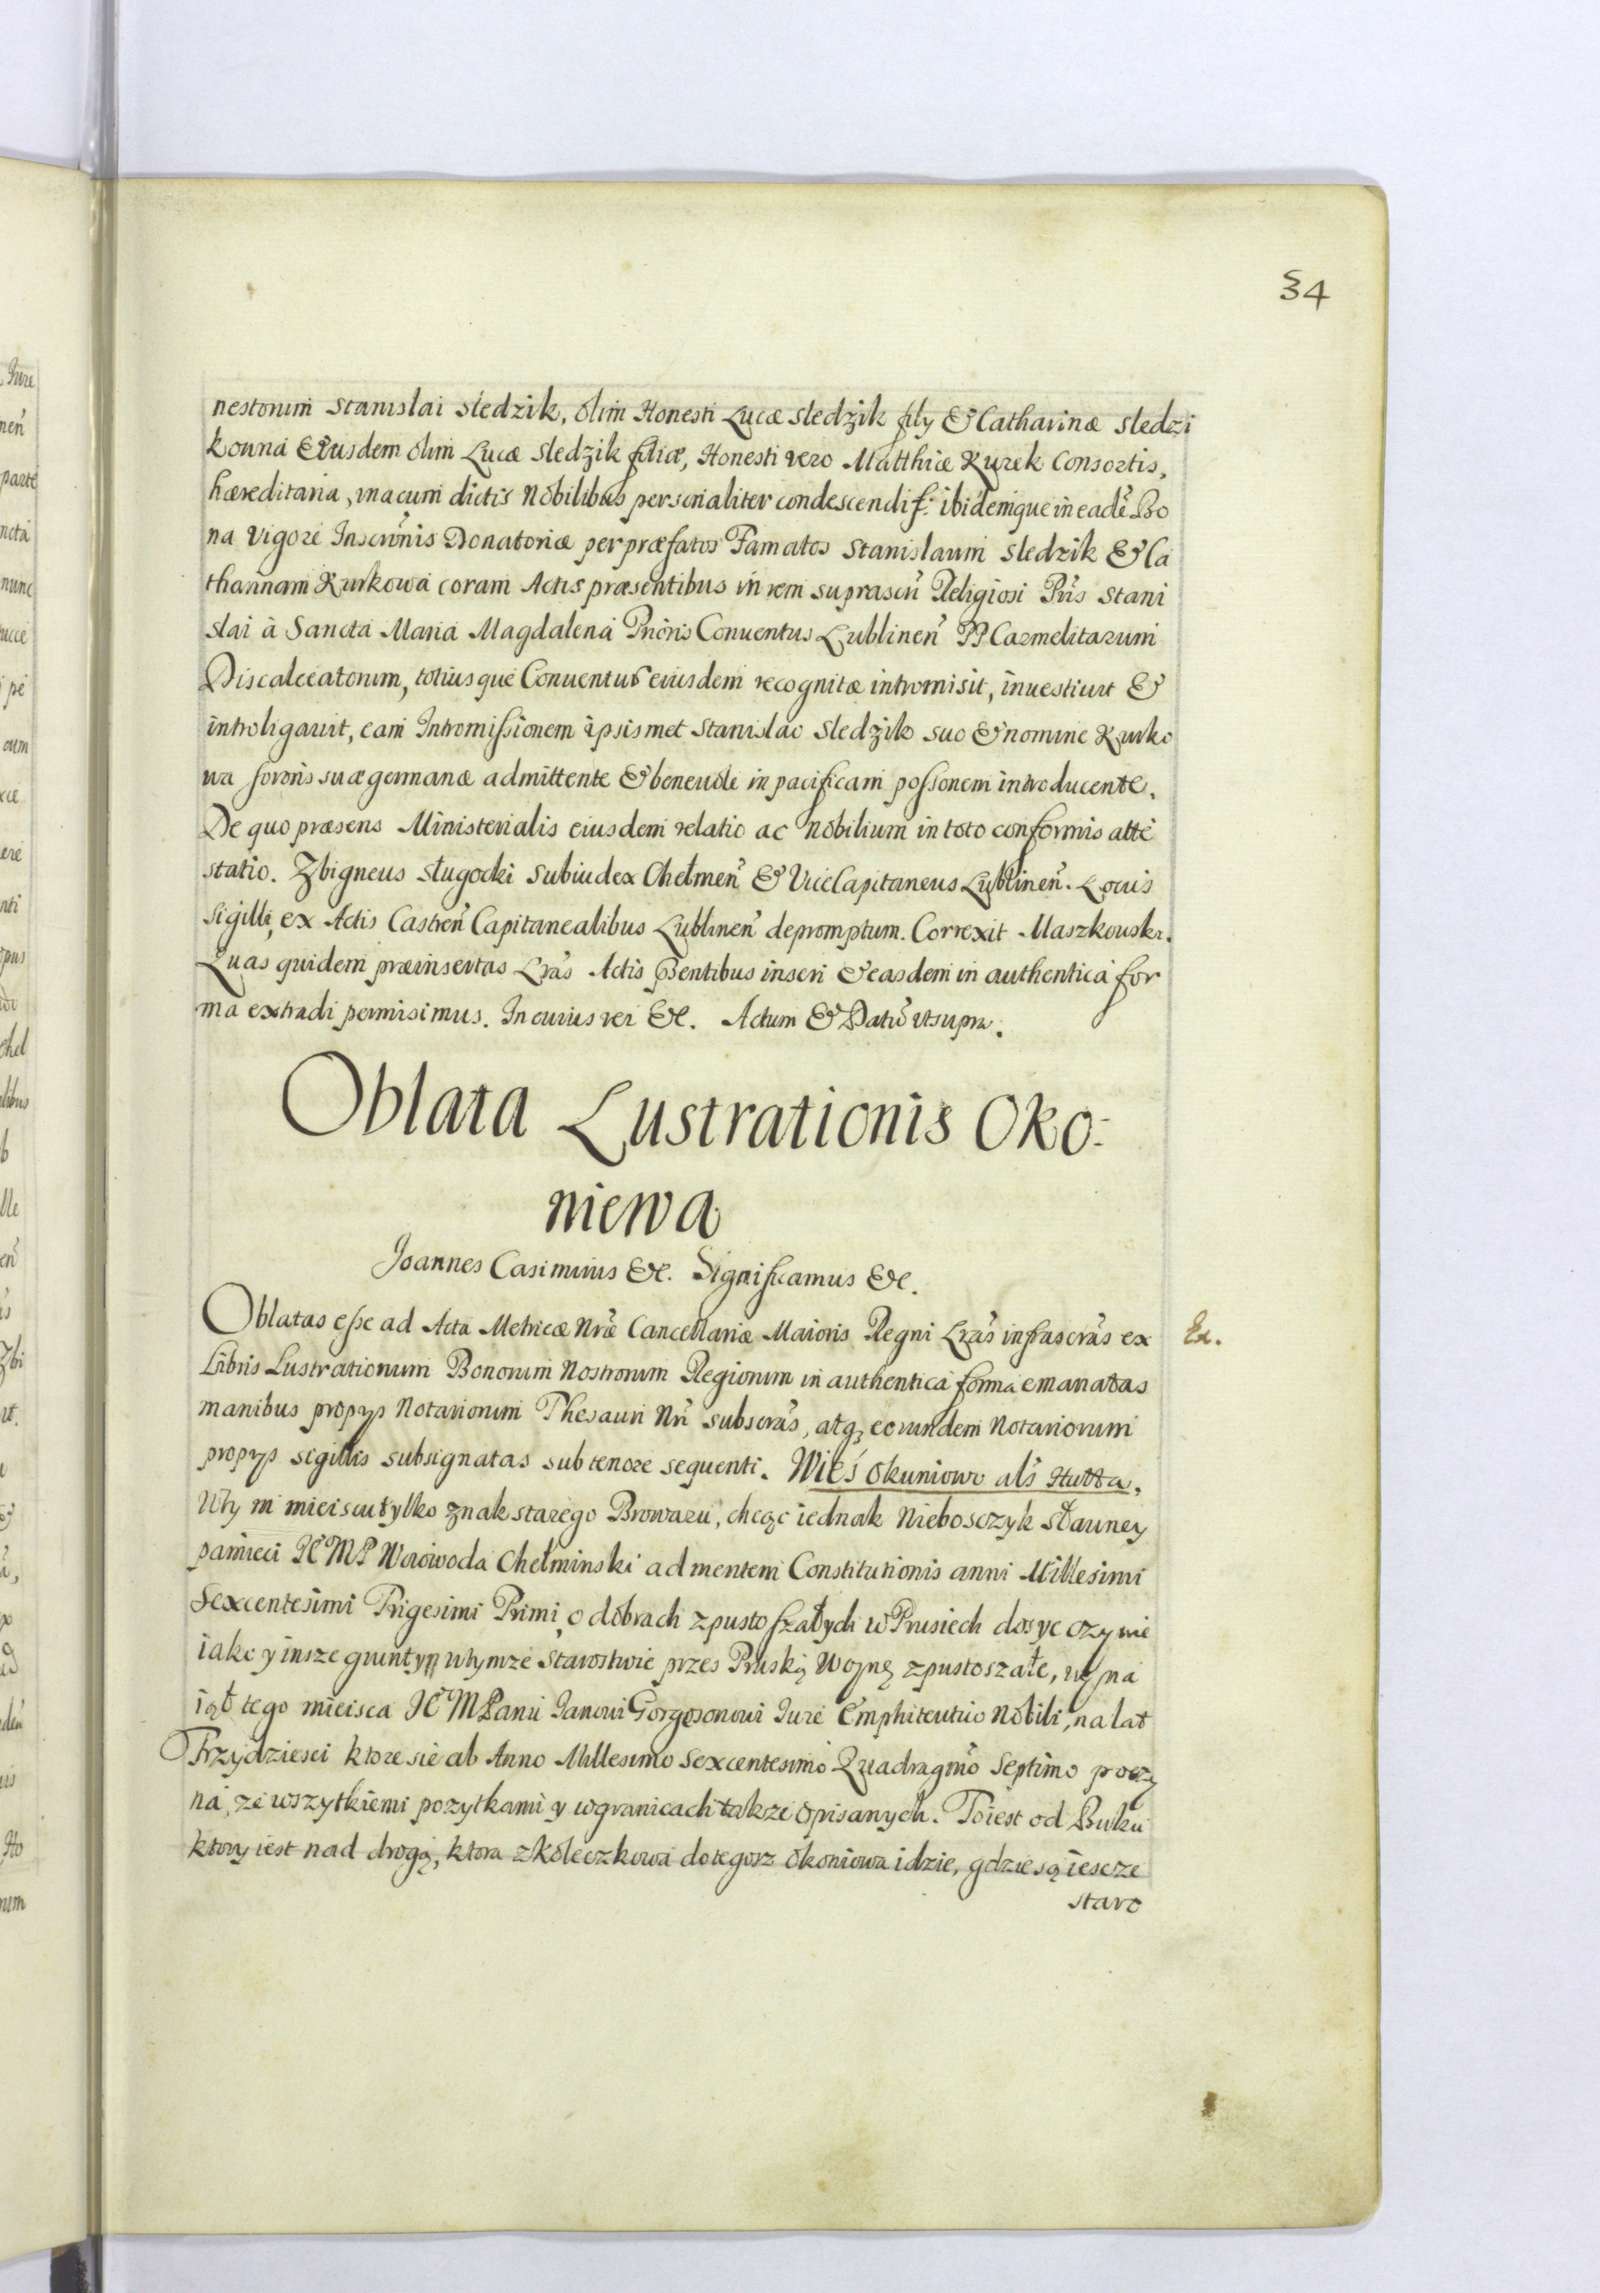 34
nestorum Stanislai Sledzik, olim Honesti Lucæ Sledzik filÿ & Catharinæ Sledzi
kowna Eiusdem olim Lucæ Sledzik filiæ, Honesti vero Matthiæ Kurek Consortis,
hæreditaria, unacum dictis Nobilibus personaliter condescendiſ: ibidemque in eadē Bo
na vigore Inscrīnis Donatoriæ per præfatos Famatos Stanislaum Sledzik & Ca
tharinam Kurkowa coram Actis præsentibus in rem suprascrī Religiosi Prīs Stani
slai à Sancta Maria Magdalena Prioris Conuentus Lublineñ PP Carmelitarum
Discalceatorum, totiusque Conuentus eiusdem recognitæ intromisit, inuestiuit &
introligauit, eam Intromiſsionem ipsismet Stanislao Sledzik suo & nomine Kurko
wa sororis suæ germanæ admittente & beneuole in pacificam poſsonem introducente.
De quo præsens Ministerialis eiusdem relatio ac Nobilium in toto conformis atte
statio. Zbigneus Sługocki Subiudex Chełmeñ & ViceCapitaneus Lublineñ. Locus
Sigilli, ex Actis Castreñ Capitanealibus Lublineñ depromptum. Correxit Maszkouski.
Quas quidem præinsertas Lrās Actis pñtibus inseri & easdem in authentica for
ma extradi permisimus. In cuius rei &c. Actum & Datū vt supra.
Oblata Lustrationis Oko:
niewa
Joannes Casimirus &c. Significamus &c.
Oblatas eſse ad Acta Metricæ Nrǣ Cancellariæ Maioris Regni Lrās infrascrās ex
Ex.
Libris Lustrationum Bonorum Nostrorum Regiorum in authentica forma emanatas
manibus proprÿs Notariorum Thesauri Nrī subscrās, atq; eorundem Notariorum
proprÿs sigillis subsignatas sub tenore sequenti. Wieś Okuniowo als Hutta.
W tym mieiscu tylko znak starego Browaru, chcąc iednak Niebosczyk sławney
pamieci JE MP Woiowoda Chełminski ad mentem Constitutionis anni Millesimi
Sexcentesimi Trigesimi Primi, o dobrach zpustoſzałych w Prusiech dosyc czynie
iako y insze grunty w tymze Starostwie przes Pruską Woynę zpustoszałe, wyna
iął tego mieisca JE MPanu Janowi Gorgosonowi Jure Emphiteutico Nobili, na lat
Trzydziesci ktore sie ab Anno Millesimo Sexcentesimo Quadragmō Septimo poczy
na, ze wszytkiemi pozytkami y w granicach takze opisanych. To iest od Buku
ktory iest nad drogą, ktora z Koleczkowa do tegosz Okoniowa idzie, gdzie są iescze
staro